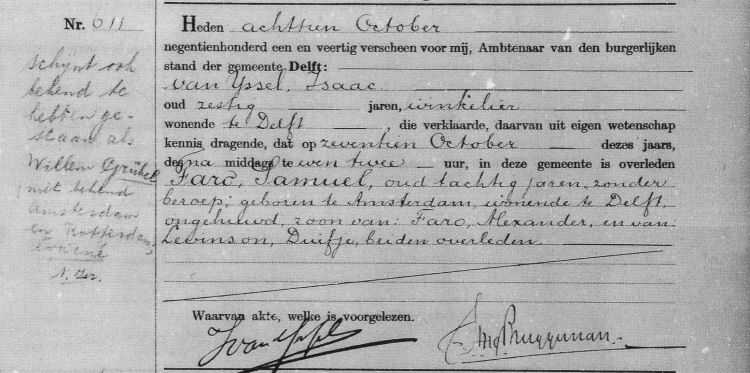 Nr. 611
schijnt ook
bekend te
hebben ge-
staan als
Willem
niet bekend
Amsterdam
en Rotterdam
Heden achttien October
negentienhonderd een en veertig verscheen voor mij, Ambtenaar van den burgerlijken
stand der gemeente Delft:
van Yssel, Isaac
oud zestig jaren, winkelier
wonende te Delft, die verklaarde, daarvan uit eigen wetenschap
kennis dragende, dat op zeventien October dezes jaars,
des na middags te een twee uur, in deze gemeente is overleden
Faro, Samuel, oud tachtig jaren, zonder
beroep; geboren te Amsterdam, wonende te Delft,
ongehuwd, zoon van: Faro, Alexander, en van
Levinson, Duifje, beiden overleden.
Waarvan akte, welke is voorgelezen.
IvanYssel
Bruggeman